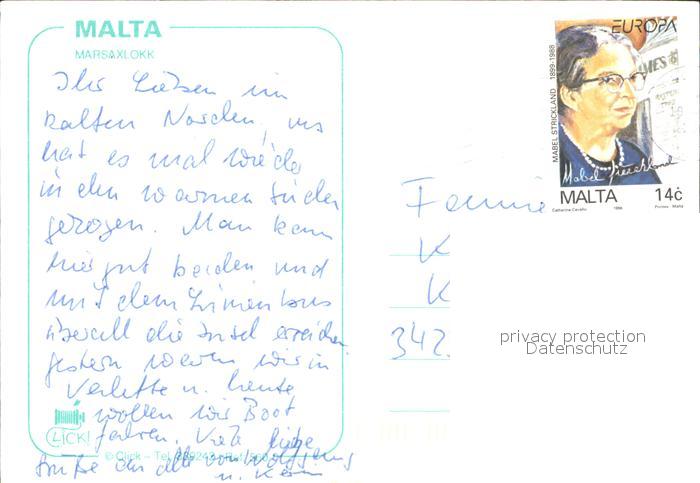 MALTA
MARSAXLOKK
Ihr Lieben im
kalten Norden, uns
hat es mal wieder
in den warmen Süden
gezogen. Man kann
hier gut baden und
mit dem Linienbus
überall die Insel erreichen.
Gestern waren wir in
Valletta u. heute
wollen wir Boot
fahren. Viele liebe
Grüße an alle von Wolfgang
u.
CLICK!
© Click - Tel.
EUROPA
MABEL STRICKLAND 1899-1988
Mabel Strickland
MALTA 14c
Familie
K
K
342
privacy protection
Datenschutz